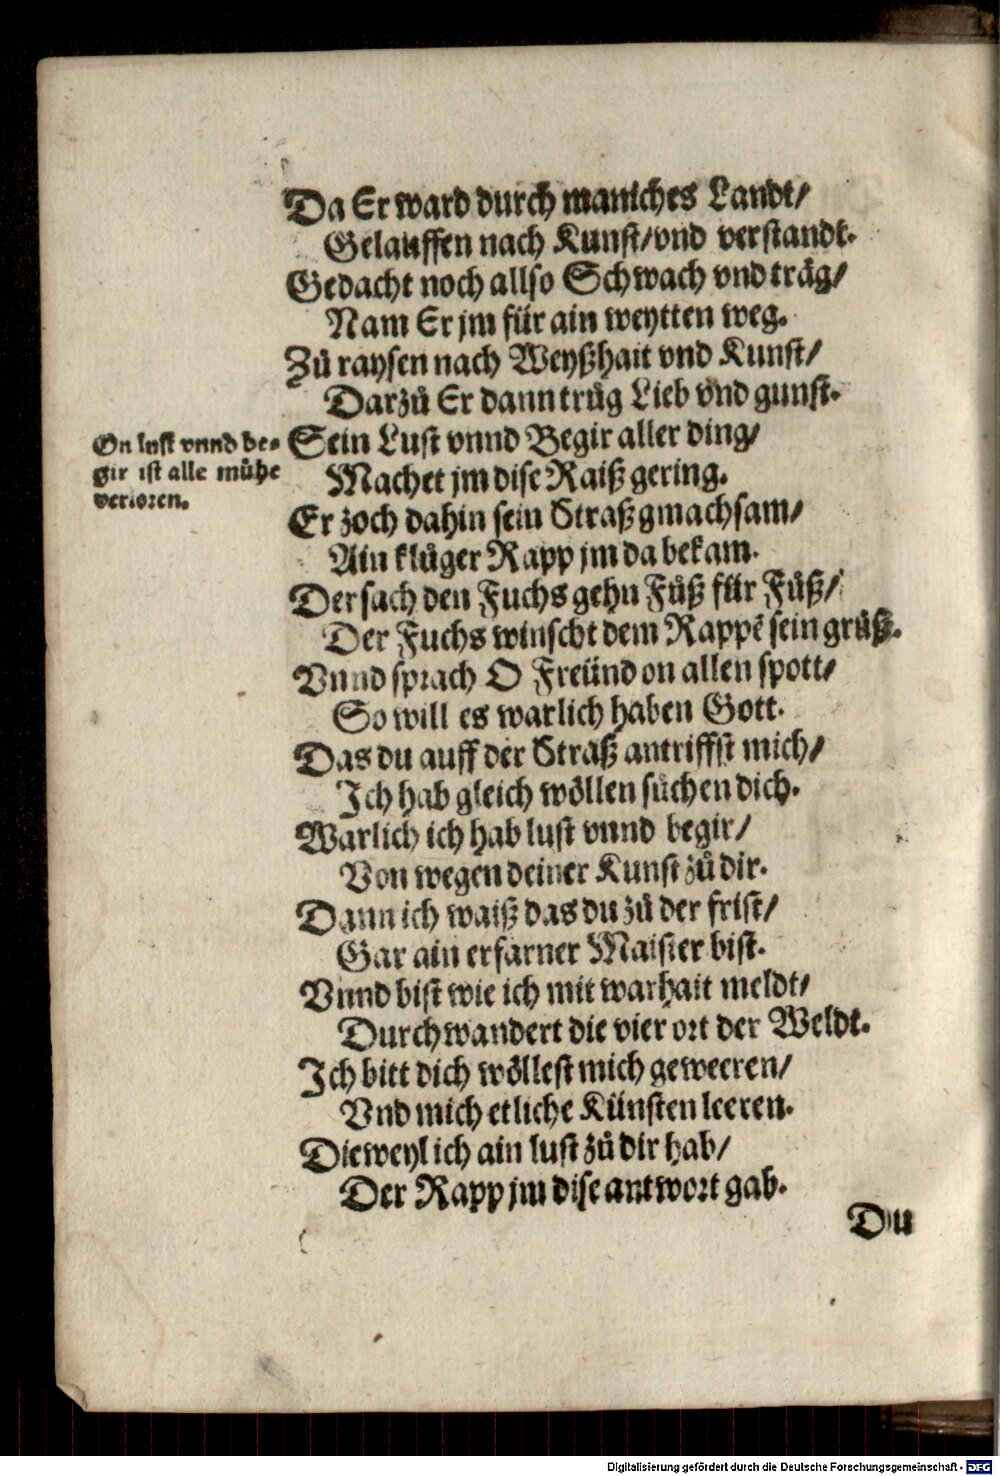 Da Er ward durch maniches Landt/
Gelauffen nach Kunst/vnd verstandt.
Gedacht noch allso Schwach vnd träg/
Nam Er jm für ain weytten weg.
Zů raysen nach Weyßhait vnd Kunst/
Darzů Er dann trůg Lieb vnd gunst.
On lust vnnd be-
gir ist alle mühe
verloren.
Sein Lust vnnd Begir aller ding/
Machet jm dise Raiß gering.
Er zoch dahin sein Straß gmachsam/
Ain klůger Rapp jm da bekam.
Der sach den Fuchs gehn Fůß für Fůß/
Der Fuchs winscht dem Rappẽ sein grůß.
Vnnd sprach O Freünd on allen spott/
So will es warlich haben Gott.
Das du auff der Straß antriffst mich/
Ich hab gleich wöllen sůchen dich.
Warlich ich hab lust vnnd begir/
Von wegen deiner Kunst zů dir.
Dann ich waiß das du zů der frist/
Gar ain erfarner Maister bist.
Vnnd bist wie ich mit warhait meldt/
Durchwandert die vier ort der Weldt.
Ich bitt dich wöllest mich geweeren/
Vnd mich etliche Künsten leeren.
Dieweyl ich ain lust zů dir hab/
Der Rapp jm dise antwort gab.
Du
Digitalisierung gefördert durch die Deutsche Forschungsgemeinschaft - DFG